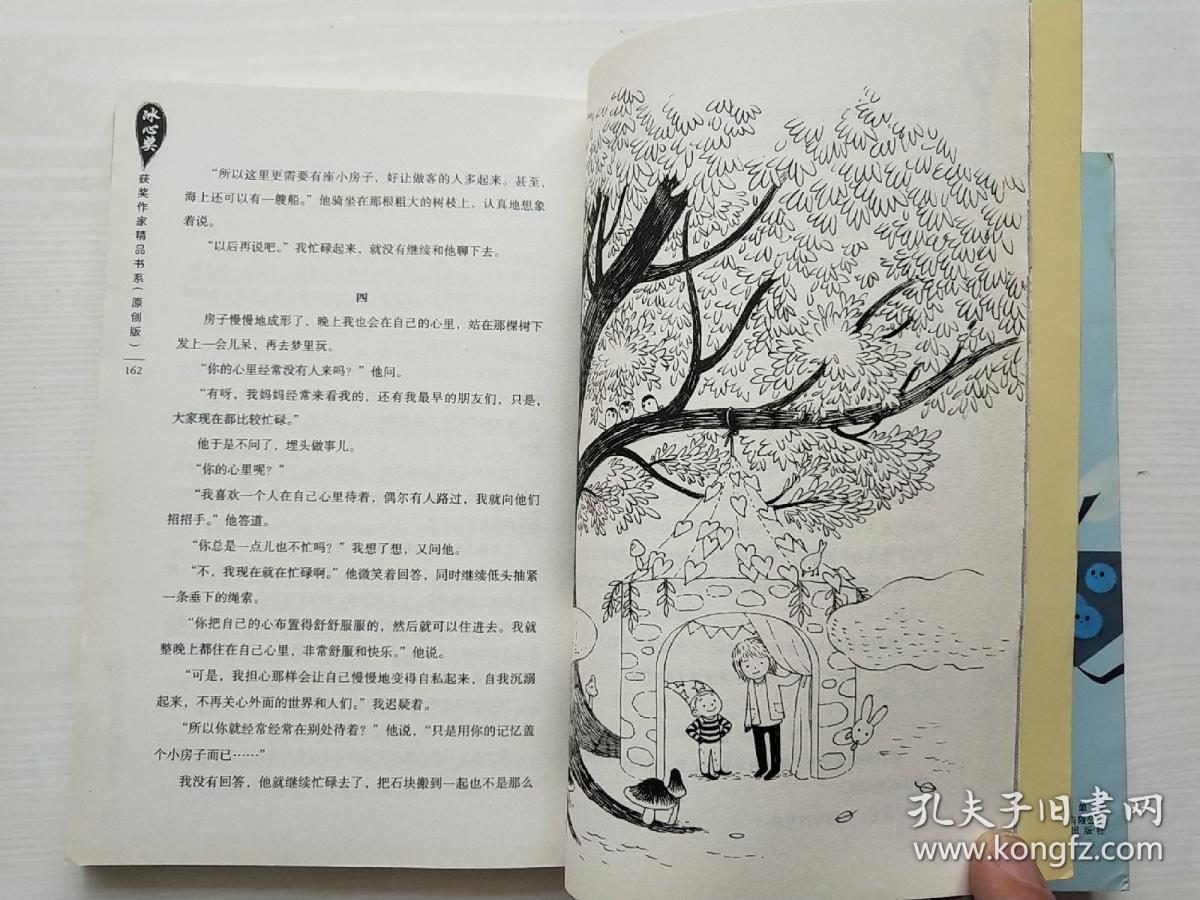 冰心奖
获奖作家精品书系(原创版)
162
“所以这里更需要有座小房子，好让做客的人多起来。甚至，
海上还可以有一艘船。”他骑坐在那根粗大的树枝上、认真地想象
着说。
“以后再说吧。”我忙碌起来、就没有继续和他聊下去。
四
房子慢慢地成形了、晚上我也会在自己的心里，站在那棵树下
发上一会儿呆、再去梦里玩。
“你的心里经常没有人来吗？”他问。
“有呀，我妈妈经常来看我的，还有我最早的朋友们，只是，
大家现在都比较忙碌。”
他于是不问了，埋头做事儿。
“你的心里呢？”
“我喜欢一个人在自己心里待着，偶尔有人路过，我就向他们
招招手。”他答道。
“你总是一点儿也不忙吗？”我想了想，又问他。
“不，我现在就在忙碌啊。”他微笑着回答，同时继续低头抽紧
一条垂下的绳索。
“你把自己的心布置得舒舒服服的，然后就可以住进去。我就
整晚上都住在自己心里，非常舒服和快乐。”他说。
“可是，我担心那样会让自己慢慢地变得自私起来，自我沉溺
起来，不再关心外面的世界和人们。”我迟疑着。
“所以你就经常经常在别处待着？”他说，“只是用你的记忆盖
个小房子而已……”
我没有回答，他就继续忙碌去了，把石块搬到一起也不是那么
单
有限公
出版社
孔夫子旧書网
www.kongfz.com